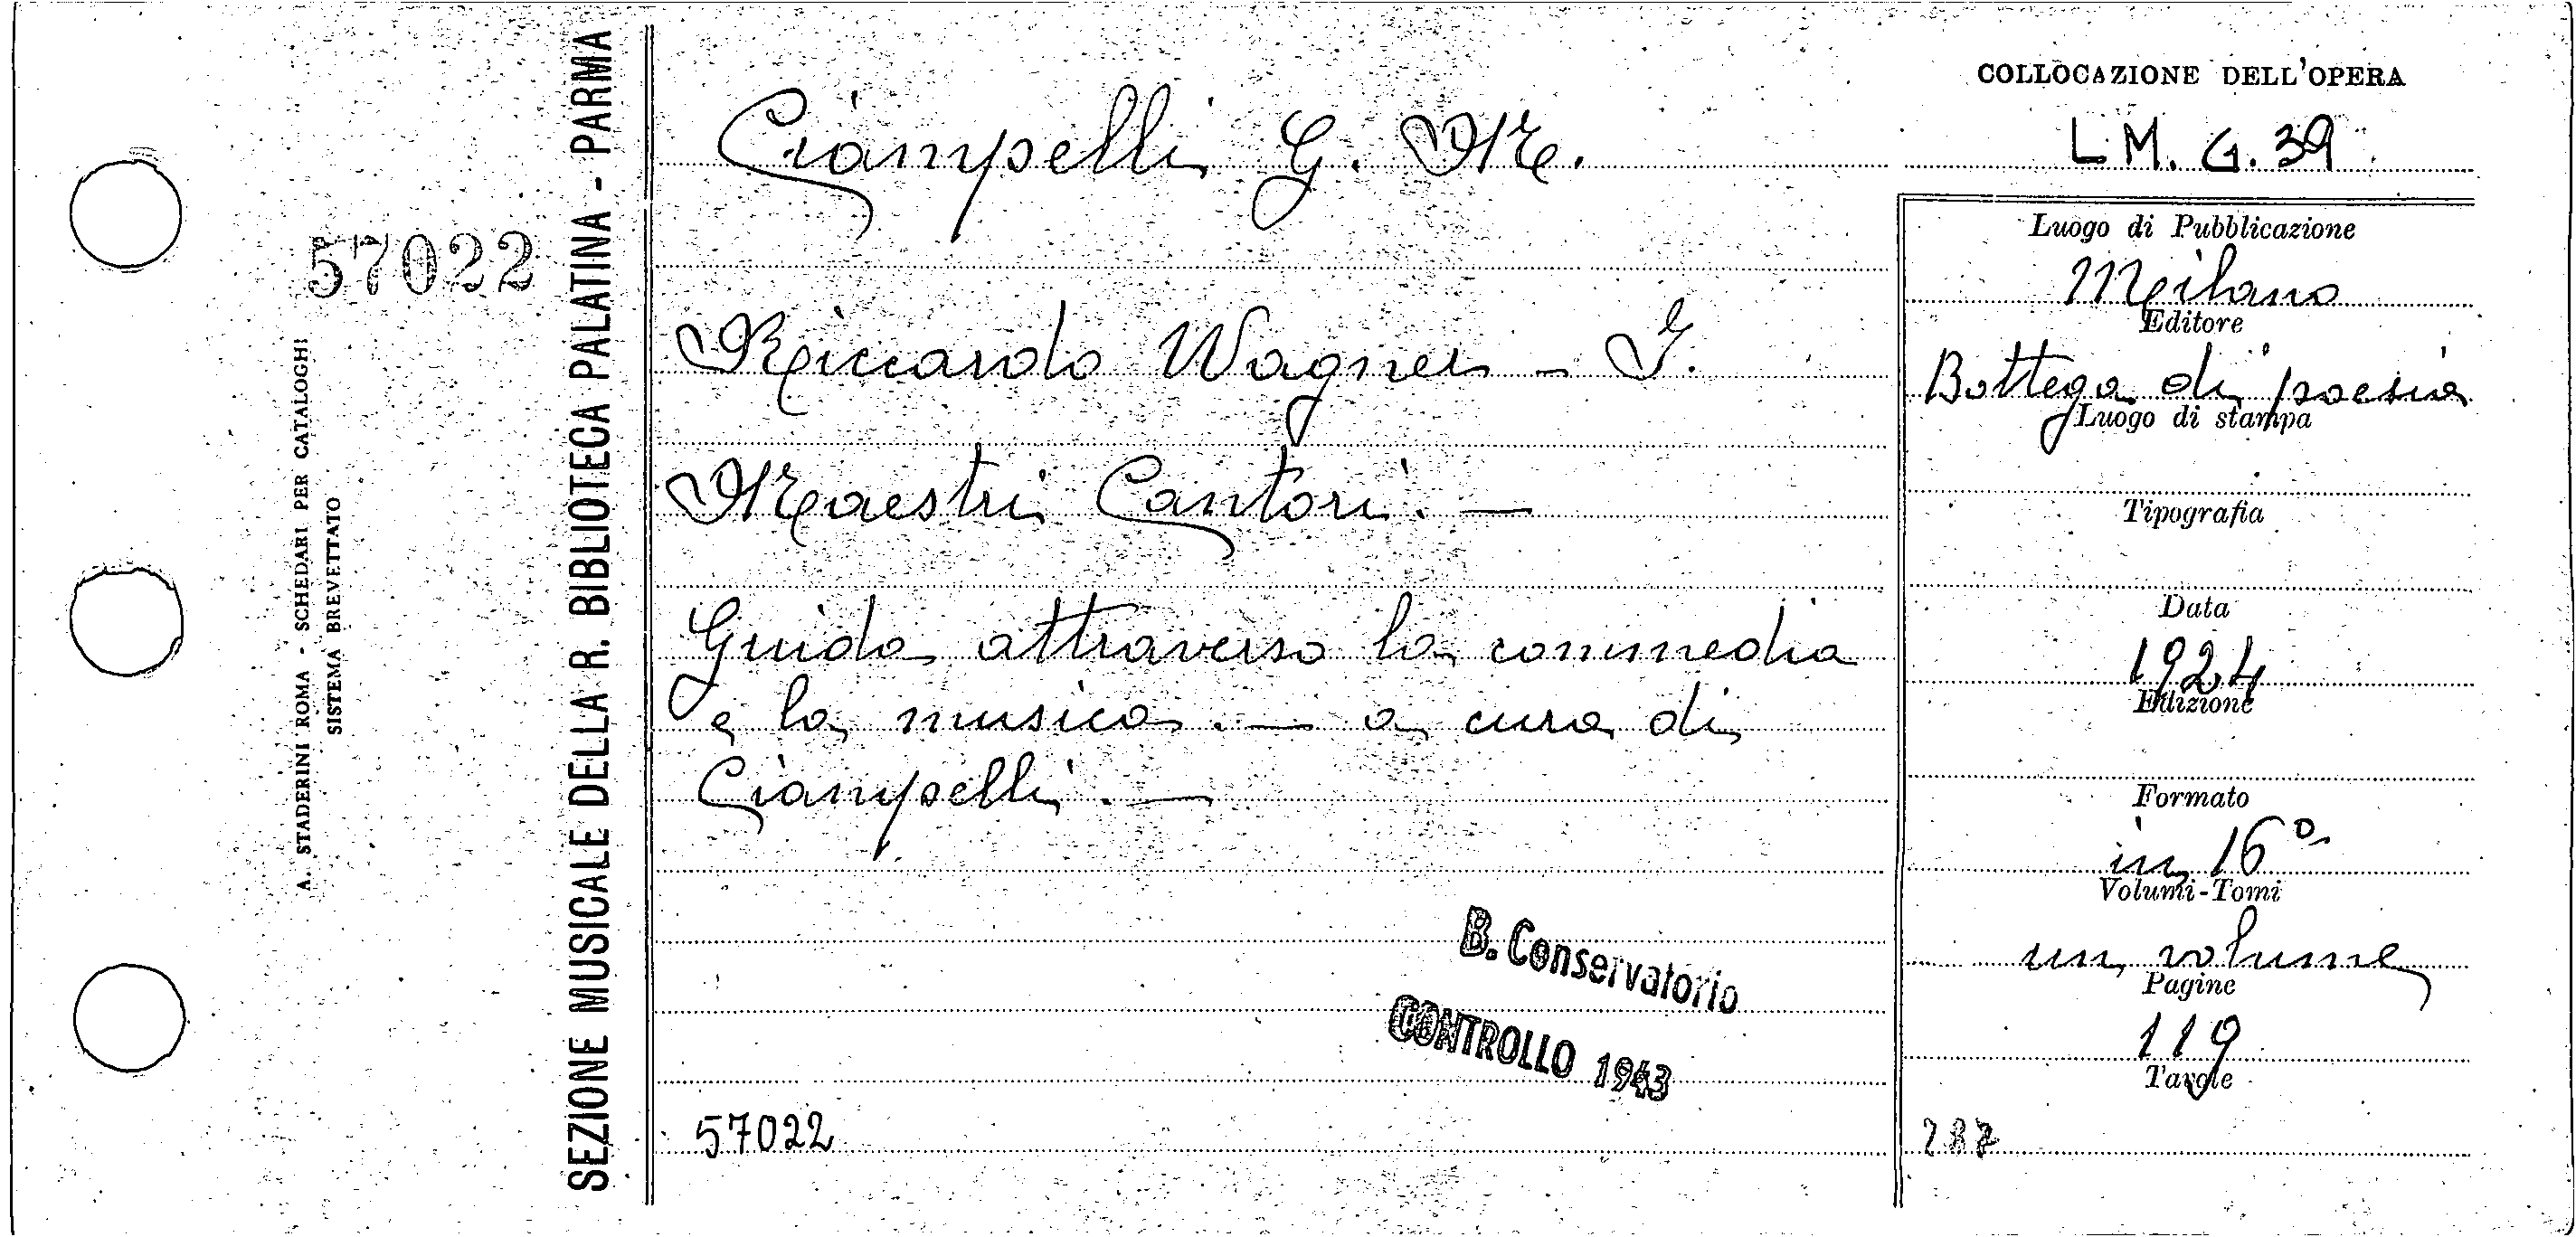 COLLOCAZIONE DELL'OPERA
Ciampelli G. M.
L M. G. 39
57022
A. STADERINI ROMA - SCHEDARI PER CATALOGHI
SISTEMA BREVETTATO
SEZIONE MUSICALE DELLA R. BIBLIOTECA PALATINA - PARMA
Riccardo Wagner - I.
Maestri Cantori. —
Guida attraverso la commedia
e la musica. — a cura di
Ciampelli. —
B. Conservatorio
CONTROLLO 1943
57022
Luogo di Pubblicazione
Milano
Editore
Bottega di poesia
Luogo di stampa
Tipografia
Data
1924
Edizione
Formato
in 16°
Volumi-Tomi
un volume
Pagine
119
Tavole
287